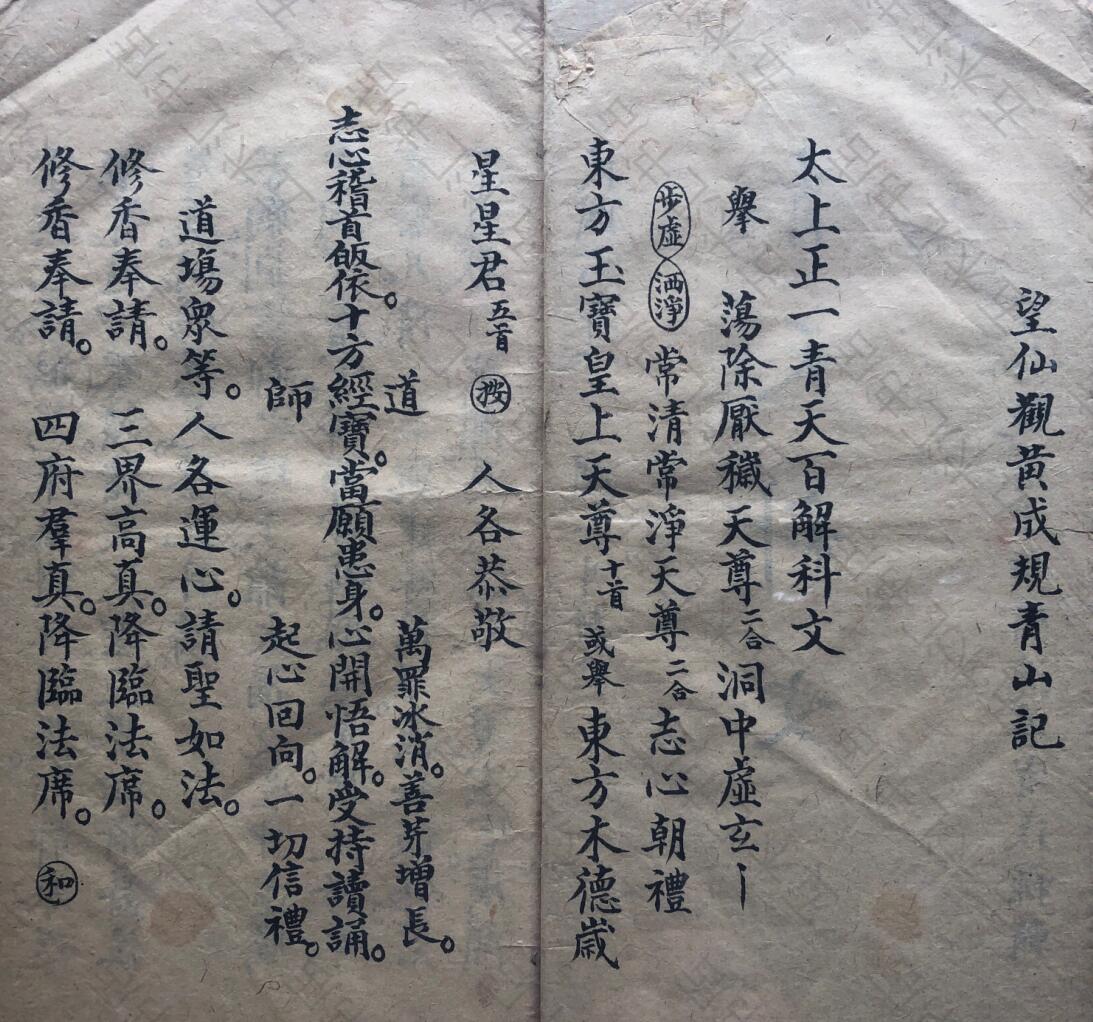 望仙觀黄成規青山記
太上正一青天百解科文
舉 蕩除厭穢天尊二合 洞中虛玄丨
步虛 洒淨 常清常淨天尊二合 志心朝禮
東方玉寶皇上天尊十首 或舉 東方木德歲
星星君五首 按 人各恭敬
道 萬罪冰消。善芽增長。
志心稽首皈依。十方經寶。當願患身。心開悟解。受持讀誦。
師 起心回向。一切信禮。
道場衆等。人各運心。請聖如法。
修香奉請。三界高真。降臨法席。
修香奉請。四府羣真。降臨法席。 和